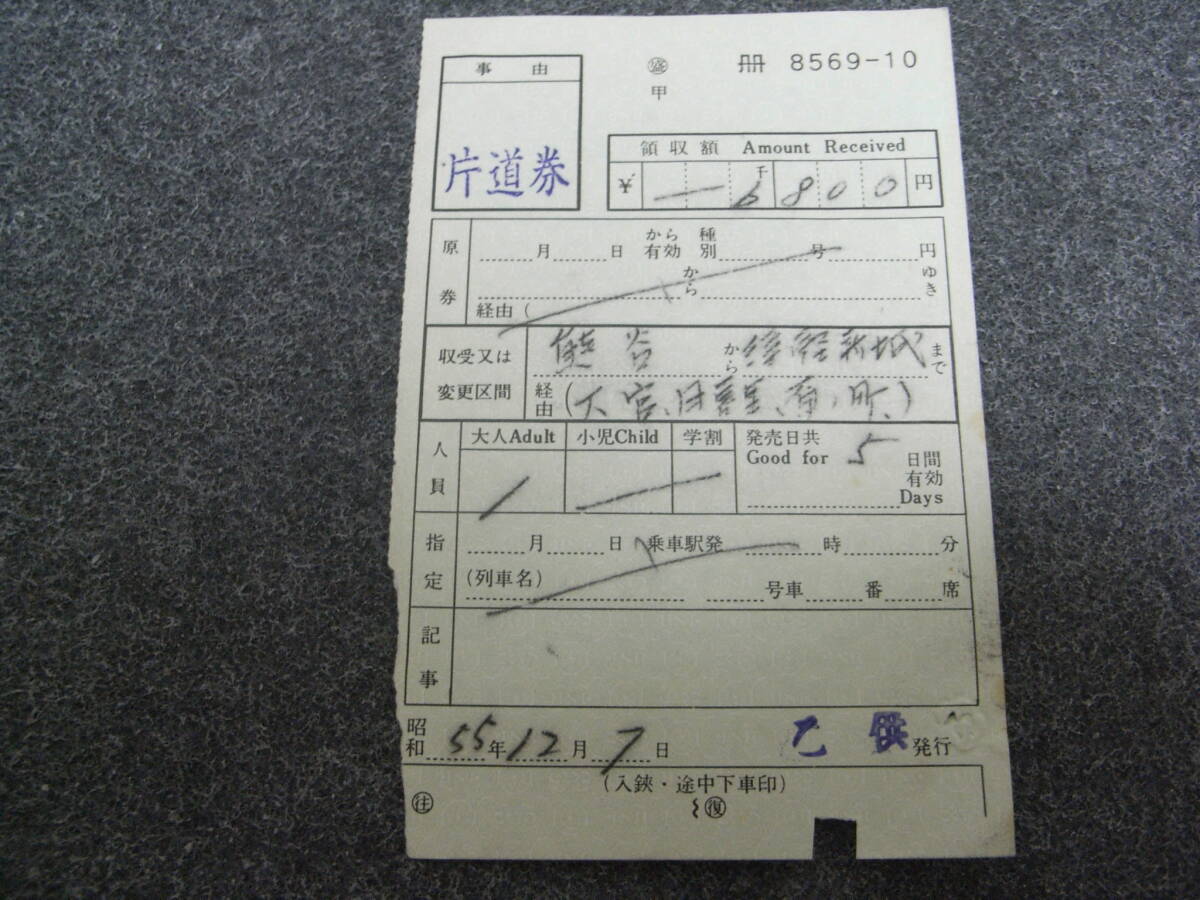 事由
㊞ 甲
冊 8569-10
片道券
領収額 Amount Received
¥ 千 6800 円
原券
月 日 から有効 種別 号 円
から ゆき
経由 (
収受又は変更区間
熊谷 から 新城 まで
経由 (大宮、日暮里、
人員
大人Adult 小児Child 学割
発売日共 Good for 5 日間有効 Days
指定
月 日 乗車駅発 時 分
(列車名) 号車 番 席
記事
昭和 55年 12月 7日 乙供 発行
(入鋏・途中下車印)
㊟ 復